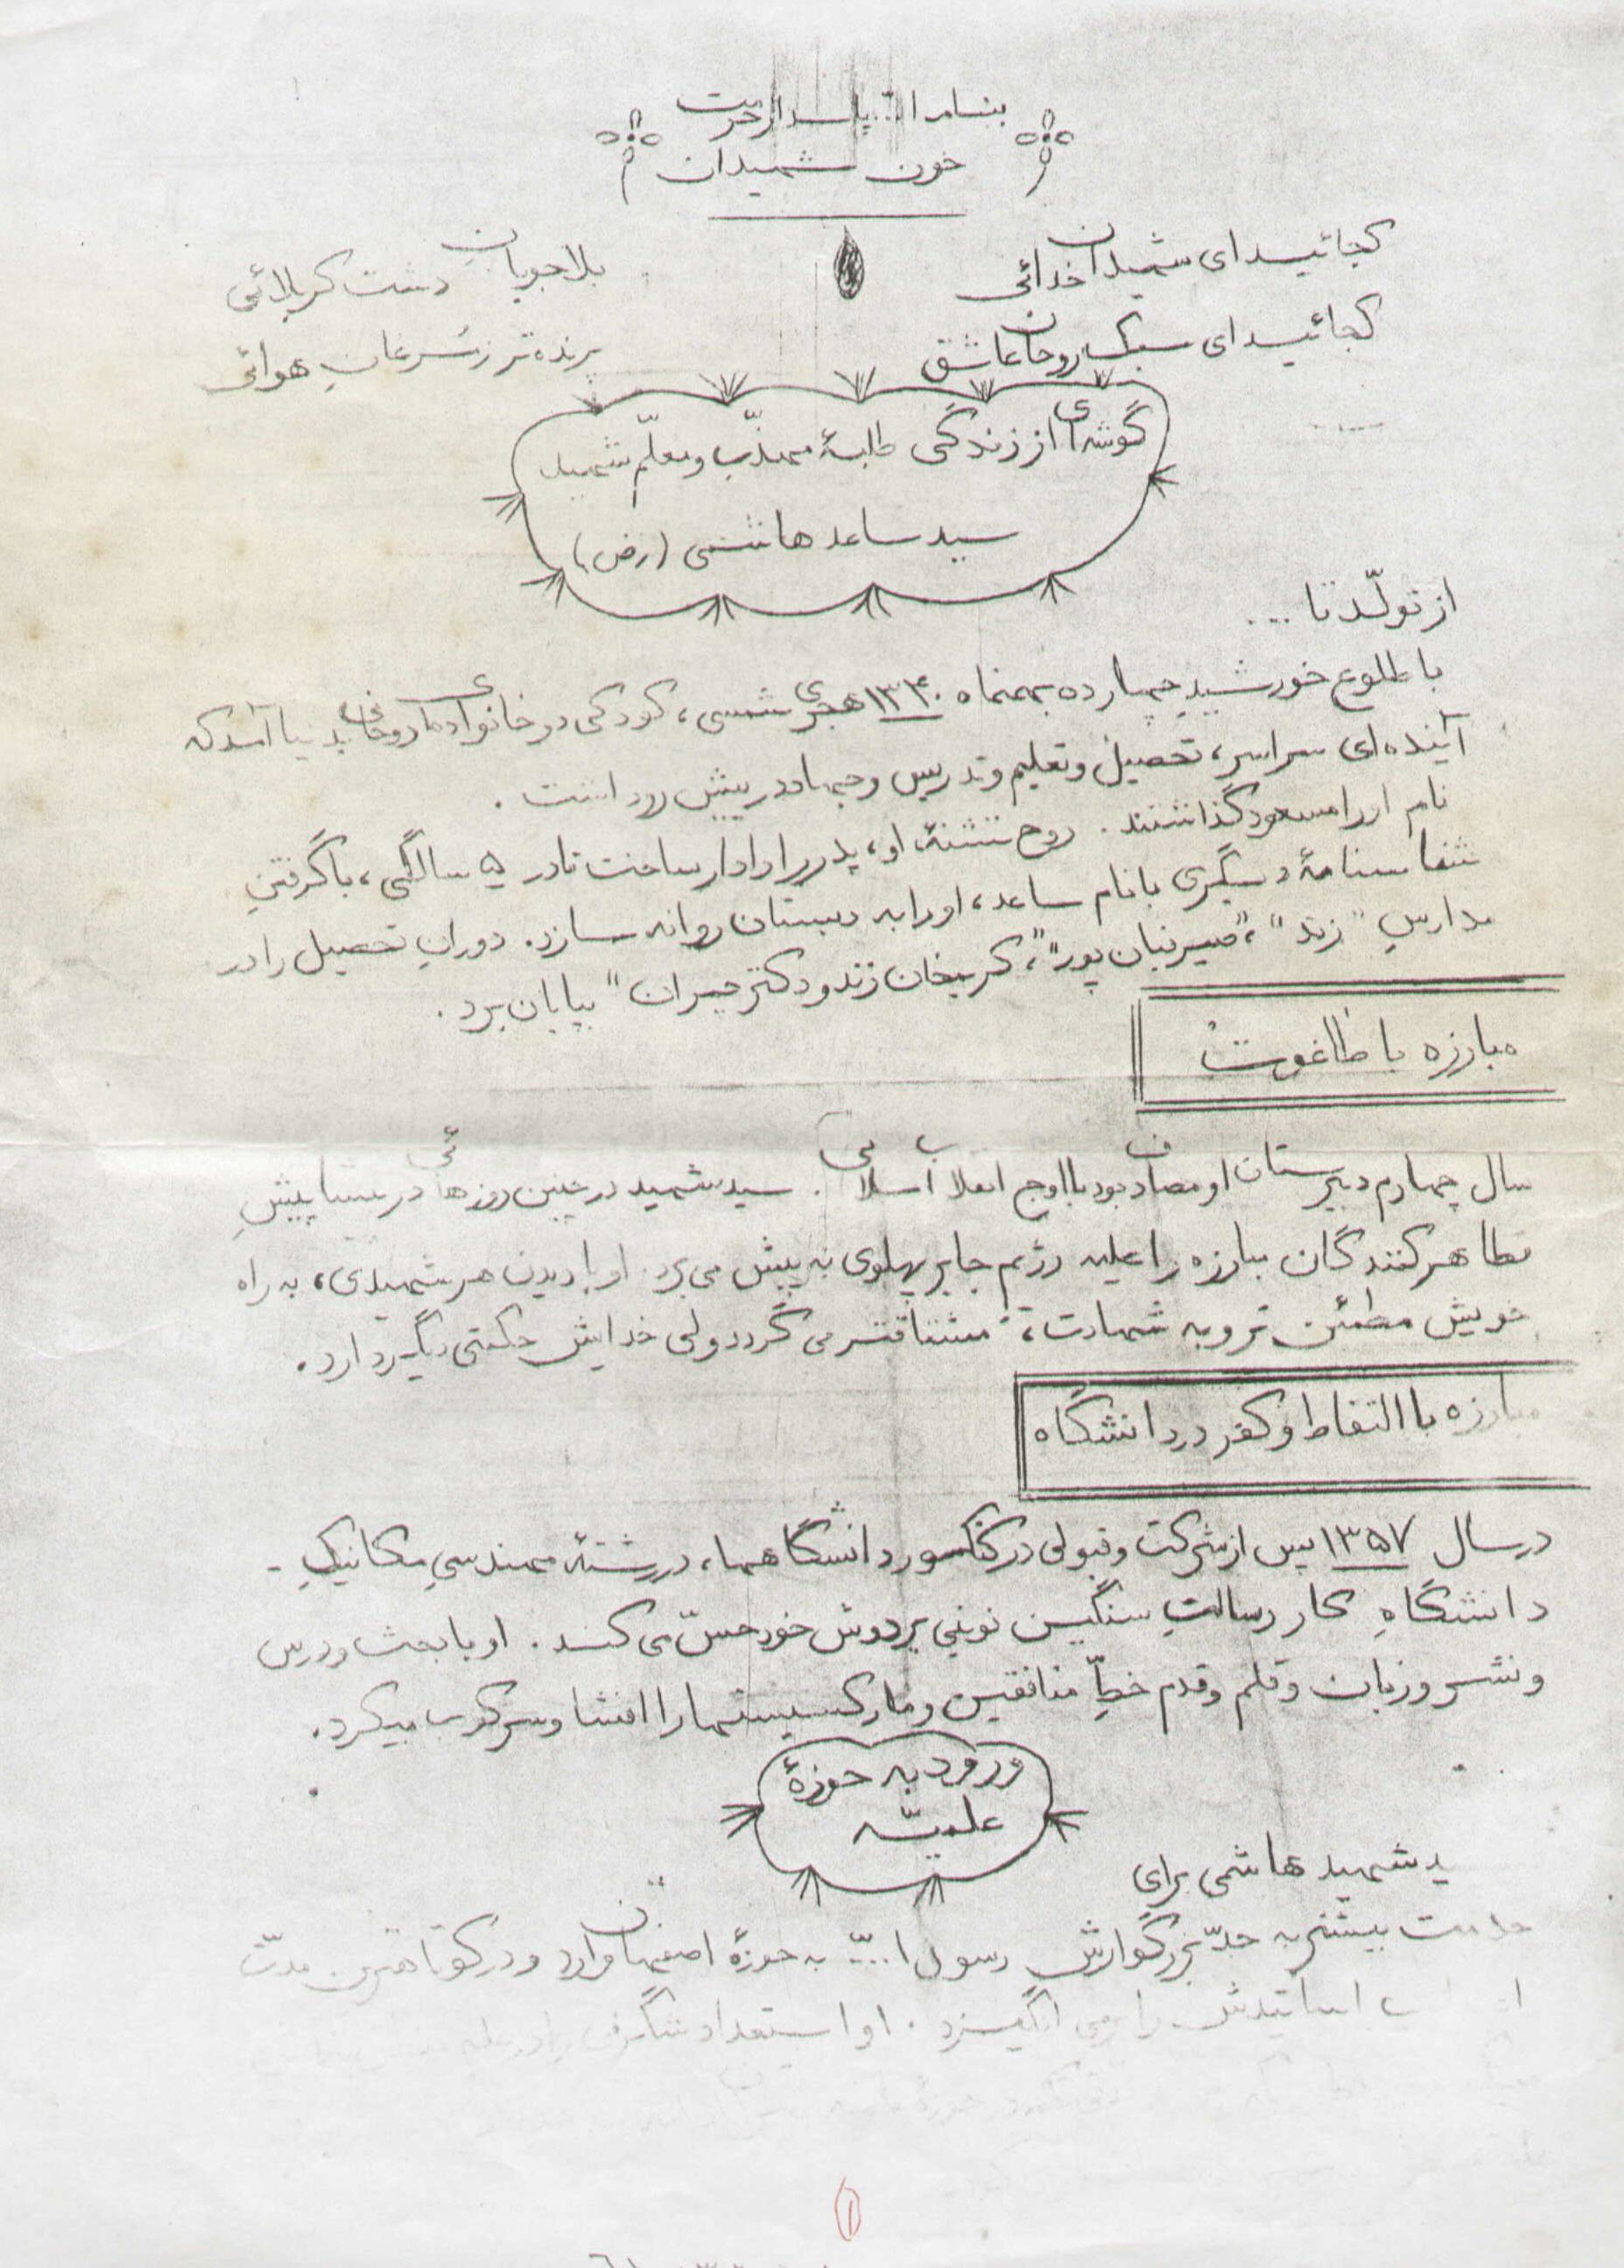 بنام ا... پاسدار حرمت
خون شهیدان
کجائید ای شهیدان خدائی بلاجویان دشت کربلائی
کجائید ای سبک روحان عاشق پرنده تر ز مرغان هوائی
گوشه ای از زندگی طلبهٔ مهذّب و معلّم شهید
سید ساعد هاشمی (رض)
از تولّد تا ...
با طلوع خورشیدِ چهارده بهمنماه ۱۳۴۰ هجری شمسی، کودکی در خانواده ای روحانی بدنیا آمد که
آینده ای سراسر، تحصیل و تعلیم و تدریس و جهاد در پیش رو داشت.
نام او را مسعود گذاشتند. روح تشنهٔ او، پدر را وادار ساخت تا در ۵ سالگی، با گرفتنِ
شناسنامهٔ دیگری با نام ساعد، او را به دبستان روانه سازد. دورانِ تحصیل را در
مدارسِ "زند"، "میرنیان پور"، "کریمخان زند و دکتر چمران" بپایان برد.
مبارزه با طاغوت
سال چهارم دبیرستان او مصادف بود با اوج انقلاب اسلامی. سید شهید در چنین روزهائی در پیشاپیشِ
تظاهرکنندگان مبارزه را علیه رژیم جابر پهلوی به پیش می برد. او با دیدن هر شهیدی، به راه
خویش مطمئن تر و به شهادت، مشتاقتر می گردد ولی خدایش حکمتی دیگر دارد.
مبارزه با التقاط و کفر در دانشگاه
در سال ۱۳۵۷ پس از شرکت و قبولی در کنکور دانشگاهها، در رشتهٔ مهندسیِ مکانیکِ -
دانشگاهِ کار رسالتِ سنگین نوینی بر دوش خود حسّ می کند. او با بحث و درس
و نشر و زبان و قلم و قدم خطِّ منافقین و مارکسیستها را افشا و سرکوب میکرد.
ورود به حوزهٔ
علمیّه
ید شهید هاشمی برایِ
خدمت بیشتر به جدّ بزرگوارش رسول ا... به حوزهٔ اصفهان وارد و در کوتاهترین مدّت
اساتیدش را برمی انگیزد. او استعداد شگرفی
۱